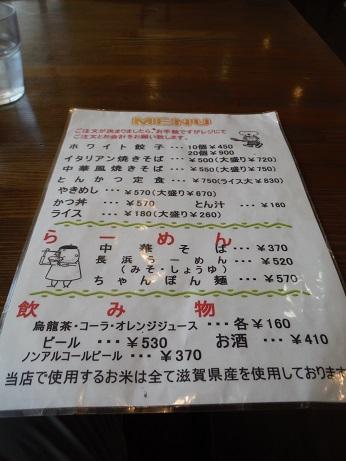 MENU
ご注文が決まりましたら、お手数ですがレジにて
ご注文とお会計をお願い致します。
ホワイト餃子・・・10個￥450
20個￥900
イタリアン焼きそば・・・￥500(大盛り￥720)
中華風焼きそば・・・￥550(大盛り￥750)
とんかつ定食・・・￥750(ライス大￥830)
やきめし・・・￥570(大盛り￥670)
かつ丼・・・￥570 とん汁・・・￥160
ライス・・・￥180(大盛り￥260)
らーめん
中華そば・・・￥370
長浜らーめん・・・￥520
(みそ・しょうゆ)
ちゃんぽん麺・・・￥570
飲み物
烏龍茶・コーラ・オレンジジュース・・・各￥160
ビール・・・￥530 お酒・・・￥410
ノンアルコールビール・・・￥370
当店で使用するお米は全て滋賀県産を使用しております